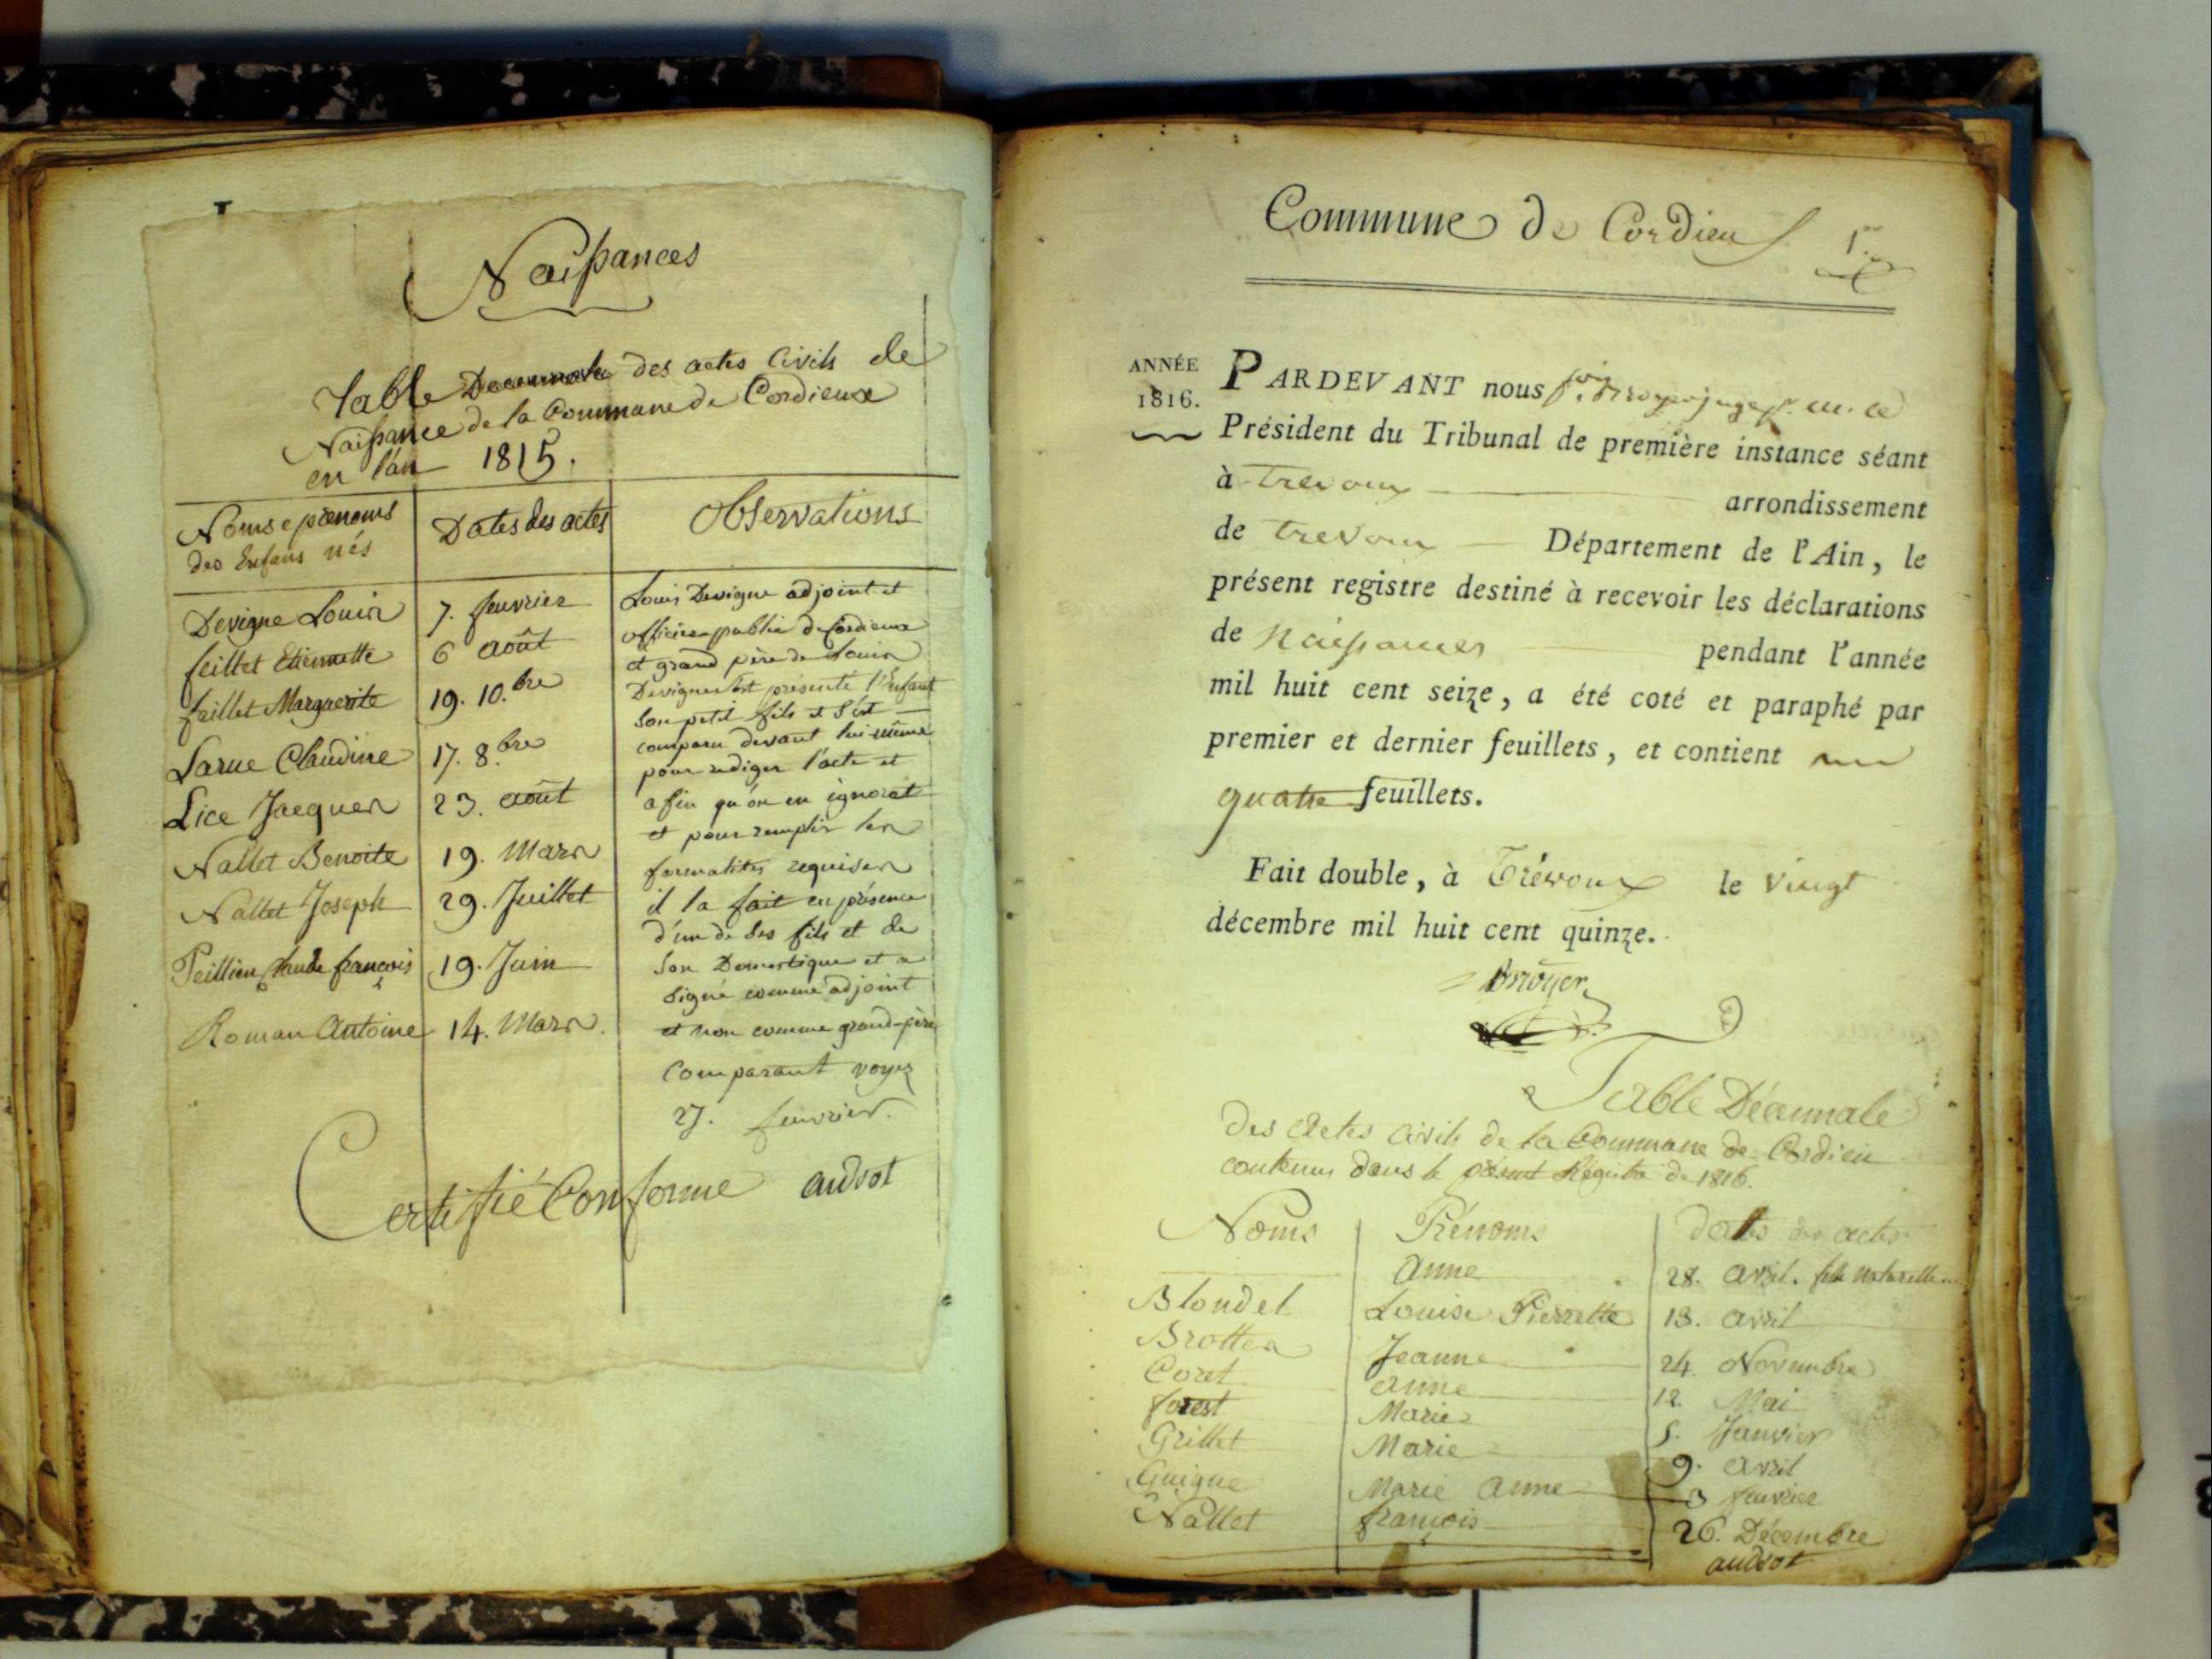 Naissances
Table Decennale des actes Civils de
Naissance de la Commune de Cordieux
en l'an 1815.
Noms e prenoms
des Enfans nés
Dates des actes
Observations
Devigne Louis 7. fevrier
feillet Etiennette 6 août
faillet Marguerite 19. 10.bre
Larue Claudine 17. 8.bre
Lice Jacques 23. août
Nallet Benoite 19. Mars
Nallet Joseph 29. Juillet
Peillieu Claude françois 19. Juin
Roman Antoine 14. Mars.
Louis Devigne adjoint et
officier public de Cordieux
et grand père de Louis
Devigne s'est présenté l'Enfant
son petit fils et s'est
comparu devant lui même
pour rediger l'acte et
afin qu'on en ignorat
et pour remplir les
formalités requises
il la fait en présence
d'un de ses fils et de
son Domestique et a
signé comme adjoint
et non comme grand-père
Comparant voyez
27. fevrier.
Certifié Conforme audrot
Commune de Cordieu 1.er
ANNÉE
1816.
PARDEVANT nous juge
Président du Tribunal de première instance séant
à trevoux arrondissement
de trevoux Département de l'Ain, le
présent registre destiné à recevoir les déclarations
de Naissances pendant l'année
mil huit cent seize, a été coté et paraphé par
premier et dernier feuillets, et contient
quatre feuillets.
Fait double, à Trévoux le vingt
décembre mil huit cent quinze.
Table Décennale
Des Actes Civils de la Commune de Cordieu
contenus dans le présent Régistre de 1816.
Noms Prénoms dates des actes
Anne 28. avril. fille naturelle
Blondel Louise Pierrette 13. avril
Brottes Jeanne 24. Novembre
Coret Anne 12. Mai
forest Marie 5. Janvier
Grillet Marie 9. avril
Guigue Marie Anne 3 fevrier
Nallet françois 26. Décembre
audrot